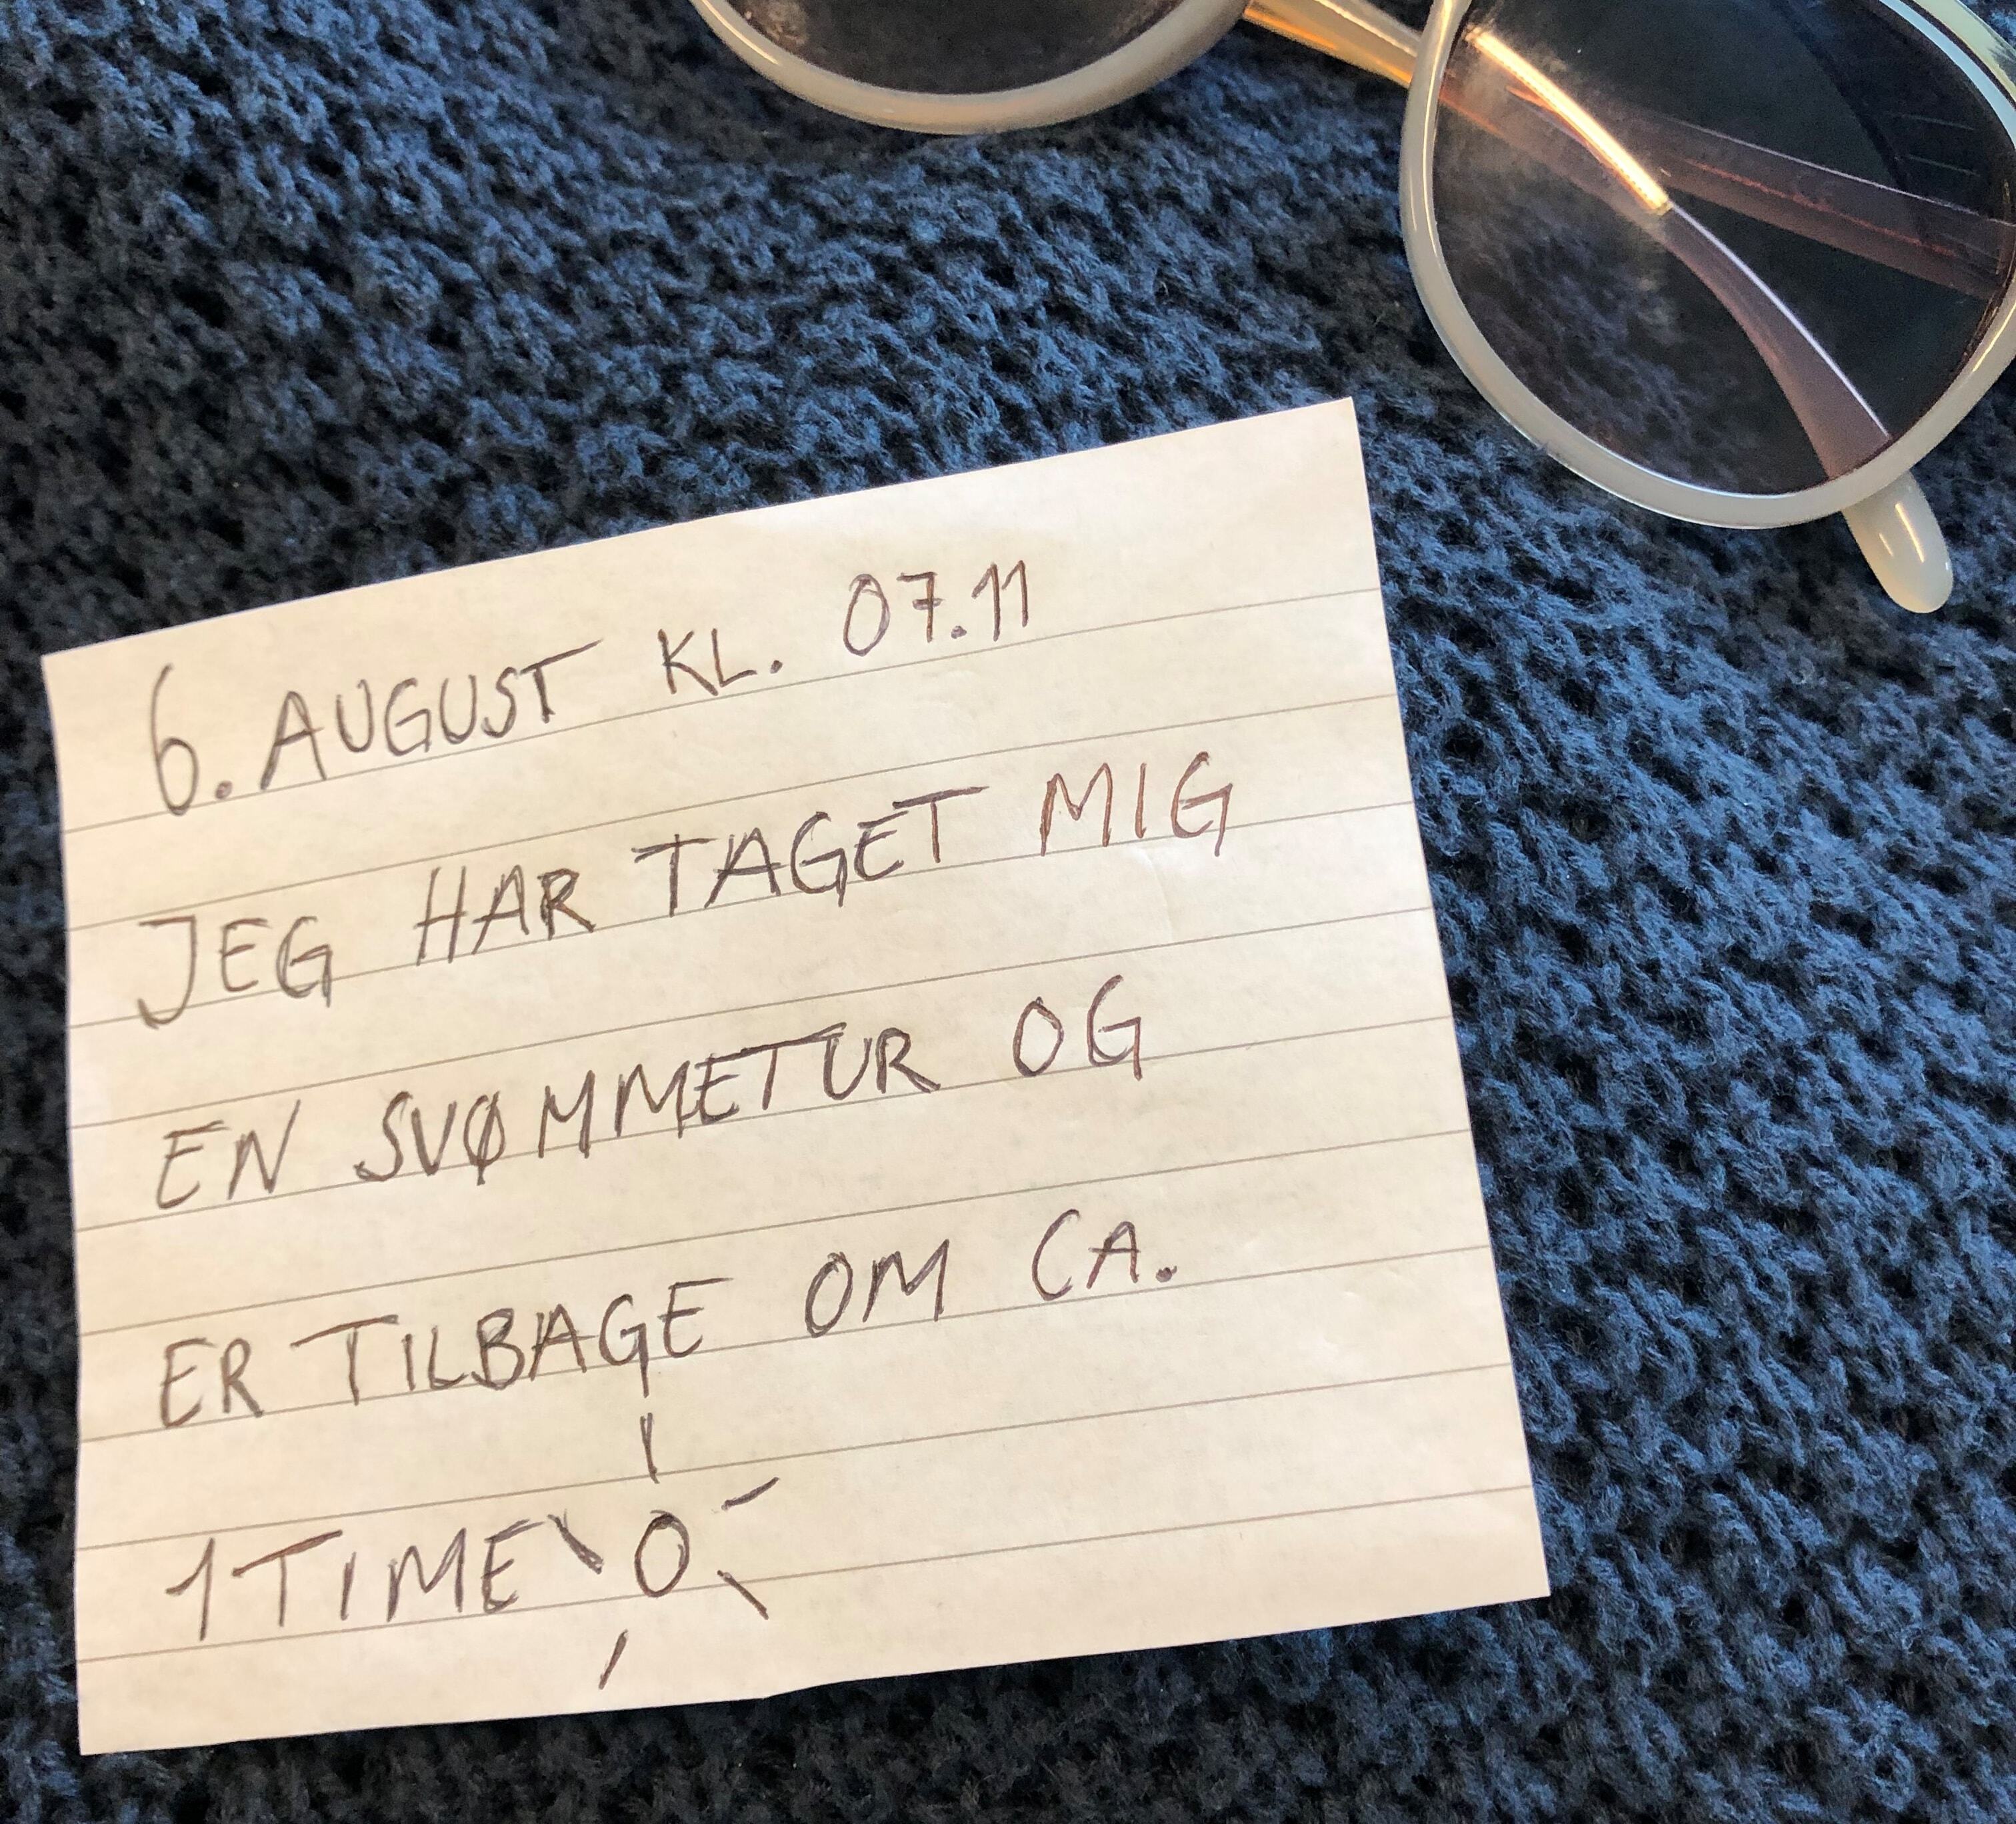 6. AUGUST KL. 07.11
JEG HAR TAGET MIG
EN SVØMMETUR OG
ER TILBAGE OM CA.
1 TIME